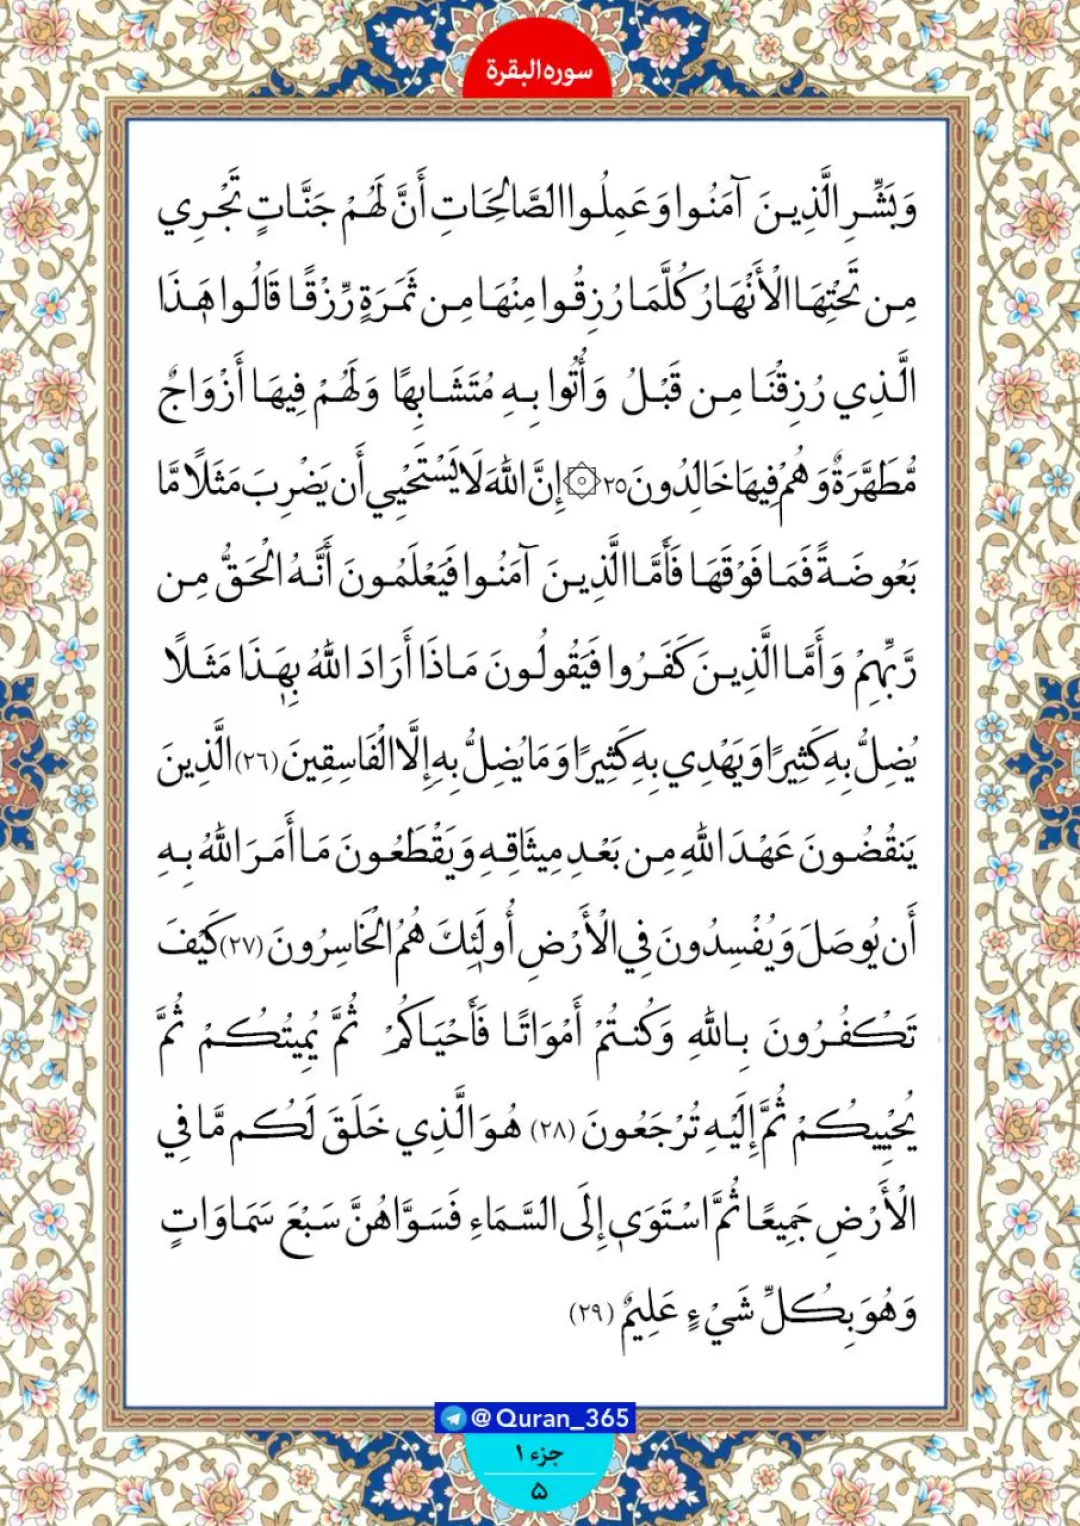 سوره البقرة
وَبَشِّرِ الَّذِينَ آمَنُوا وَعَمِلُوا الصَّالِحَاتِ أَنَّ لَهُمْ جَنَّاتٍ تَجْرِي
مِن تَحْتِهَا الْأَنْهَارُ كُلَّمَا رُزِقُوا مِنْهَا مِن ثَمَرَةٍ رِّزْقًا قَالُوا هَٰذَا
الَّذِي رُزِقْنَا مِن قَبْلُ وَأُتُوا بِهِ مُتَشَابِهًا وَلَهُمْ فِيهَا أَزْوَاجٌ
مُّطَهَّرَةٌ وَهُمْ فِيهَا خَالِدُونَ ٢٥ ۞ إِنَّ اللَّهَ لَا يَسْتَحْيِي أَن يَضْرِبَ مَثَلًا مَّا
بَعُوضَةً فَمَا فَوْقَهَا فَأَمَّا الَّذِينَ آمَنُوا فَيَعْلَمُونَ أَنَّهُ الْحَقُّ مِن
رَّبِّهِمْ وَأَمَّا الَّذِينَ كَفَرُوا فَيَقُولُونَ مَاذَا أَرَادَ اللَّهُ بِهَٰذَا مَثَلًا
يُضِلُّ بِهِ كَثِيرًا وَيَهْدِي بِهِ كَثِيرًا وَمَا يُضِلُّ بِهِ إِلَّا الْفَاسِقِينَ (٢٦) الَّذِينَ
يَنقُضُونَ عَهْدَ اللَّهِ مِن بَعْدِ مِيثَاقِهِ وَيَقْطَعُونَ مَا أَمَرَ اللَّهُ بِهِ
أَن يُوصَلَ وَيُفْسِدُونَ فِي الْأَرْضِ أُولَٰئِكَ هُمُ الْخَاسِرُونَ (٢٧) كَيْفَ
تَكْفُرُونَ بِاللَّهِ وَكُنتُمْ أَمْوَاتًا فَأَحْيَاكُمْ ثُمَّ يُمِيتُكُمْ ثُمَّ
يُحْيِيكُمْ ثُمَّ إِلَيْهِ تُرْجَعُونَ (٢٨) هُوَ الَّذِي خَلَقَ لَكُم مَّا فِي
الْأَرْضِ جَمِيعًا ثُمَّ اسْتَوَىٰ إِلَى السَّمَاءِ فَسَوَّاهُنَّ سَبْعَ سَمَاوَاتٍ
وَهُوَ بِكُلِّ شَيْءٍ عَلِيمٌ (٢٩)
@Quran_365
جزء ۱
۵